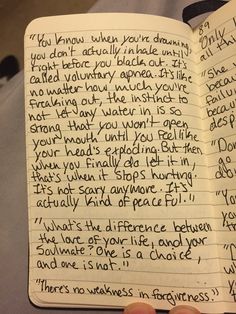 "You know when you're drowning
you don't actually inhale until
right before you black out. It's
called voluntary apnea. It's like
no matter how much you're
freaking out, the instinct to
not let any water in is so
strong that you won't open
your mouth until you feel like
your head's exploding. But then
when you finally do let it in,
that's when it stops hurting.
It's not scary anymore. It's
actually kind of peaceful."
"What's the difference between
the love of your life, and your
Soulmate? One is a choice,
and one is not."
"There's no weakness in forgiveness."
89
"Only
all thi
"She
becau
failu
becau
desp
"Don
"
"You